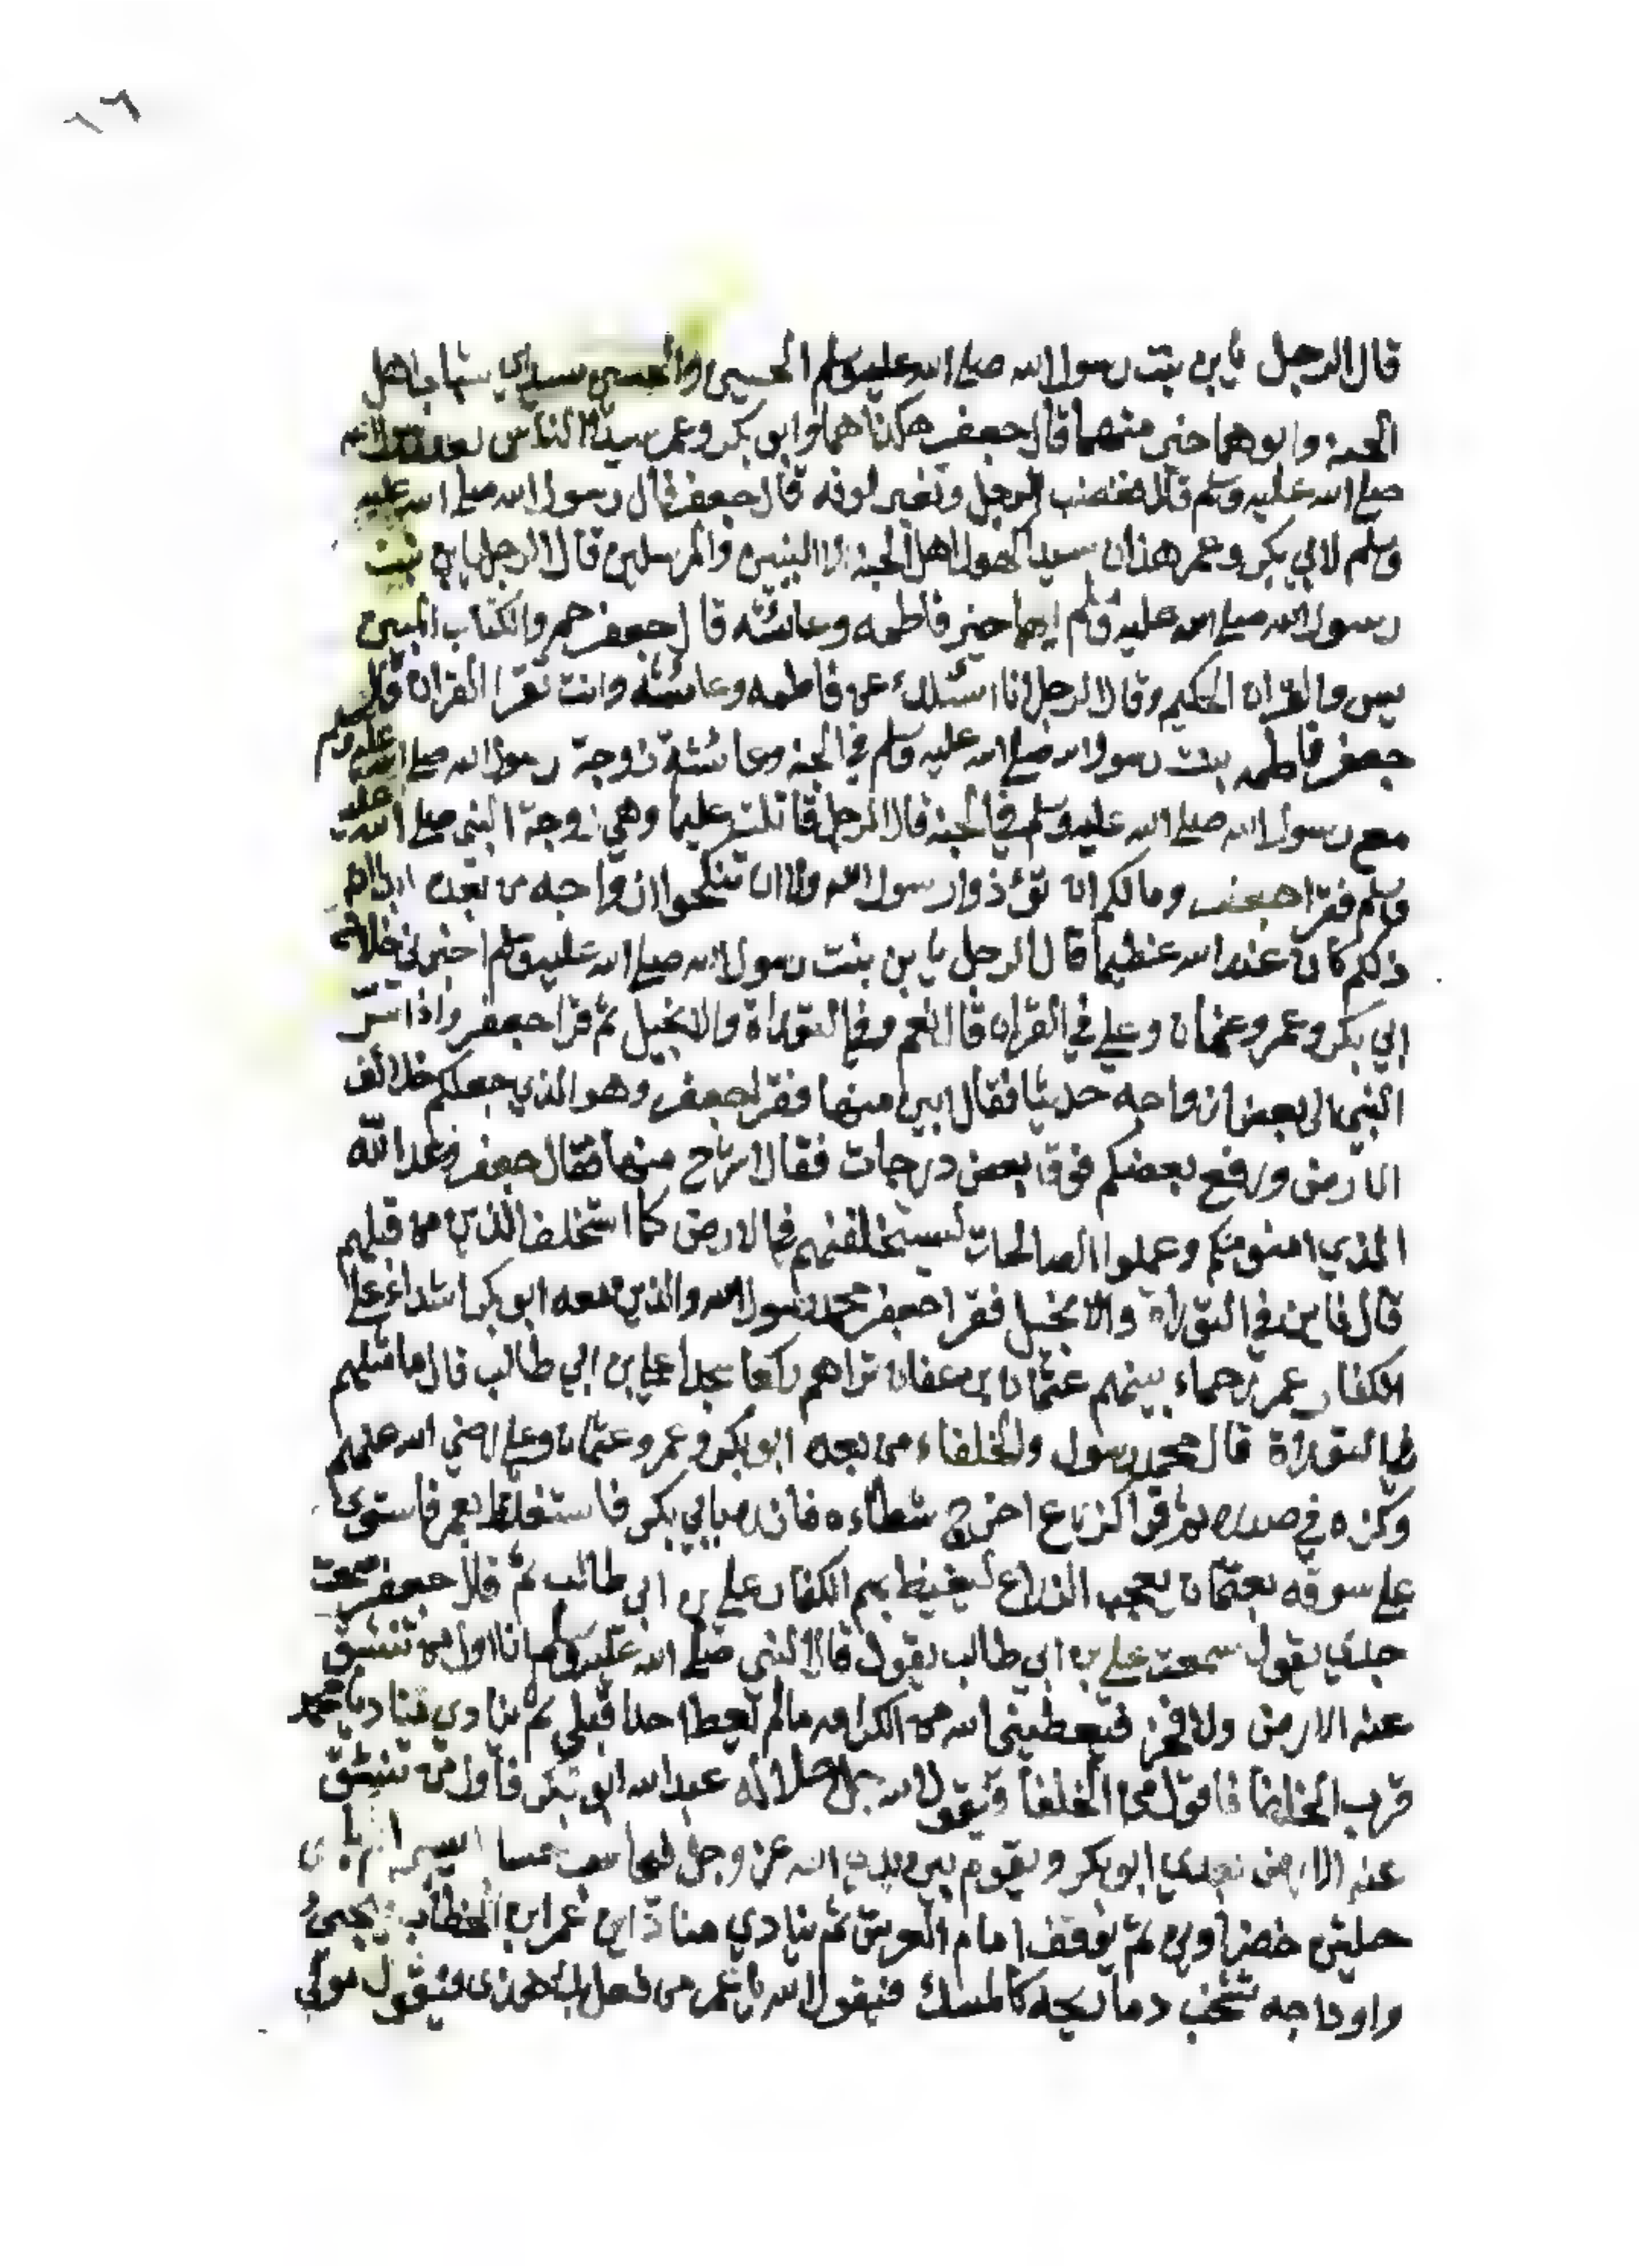 ٦٦
قال الرجل يابن بنت رسول الله صلي الله عليه وسلم الحسين والحسن سيداي شباب اهل
الجنة وابوهما خير منهما قال جعفر هكذا هما وابو بكر وعمر سيدا الناس بعد رسول الله
صلي الله عليه وسلم قال فغضب الرجل وتغير لونه قال جعفر قال رسول الله صلي الله عليه
وسلم لابي بكر وعمر هذان سيدا كهول اهل الجنة الا النبيين والمرسلين قال الرجل يابن بنت
رسول الله صلي الله عليه وسلم ايما خير فاطمه وعائشه قال جعفر حم والكتاب المبين
يس والقران الحكيم وقال الرجل انا اسئلك عن فاطمه وعائشه وانت تقرا القران قال
جعفر فاطمه بنت رسول الله صلي الله عليه وسلم في الجنه وعائشة زوجة رسول الله صلي الله عليه وسلم
مع رسول الله صلي الله عليه وسلم في الجنه قال الرجل قاتلت عليا وهي زوجة النبي صلي الله عليه
وسلم فقرا جعفر وما لكم ان تؤذوا رسول الله ولا ان تنكحوا ازواجه من بعده ابدا ان
ذلكم كان عند الله عظيما قال الرجل يابن بنت رسول الله صلي الله عليه وسلم اخبرني خلافة
ابي بكر وعمر وعثمان وعلي في القران قال نعم وفي التوراة والانجيل ثم قرا جعفر واذ اسر
النبي الي بعض ازواجه حديثا فقال ابين منها فقرا جعفر وهو الذي جعلكم خلائف
الارض ورفع بعضكم فوق بعض درجات فقال اشرح منها فقال جعفر وعد الله
الذي امنو منكم وعملوا الصالحات ليستخلفنهم في الارض كما استخلف الذين من قبلهم
قال فاين في التوراة والانجيل فقرا جعفر محمد رسول الله والذين معه ابو بكر اشداء علي
الكفار عمر رحماء بينهم عثمان ابن عفان تراهم ركعا سجدا علي بن ابي طالب قال ما مثلهم
في التوراة قال محمد رسول والخلفاء من بعده ابو بكر وعمر وعثمان وعلي رضي الله عنهم
وكزه في صدره ثم قرا كزرع اخرج شطاءه فازره بابي بكر فاستغلظ بعمر فاستوي
علي سوقه بعثمان يعجب الزراع ليغيظ بهم الكفار علي بن ابي طالب ثم قال جعفر سمعت
جدي يقول سمعت علي بن ابي طالب يقول قال النبي صلي الله عليه وسلم انا اول من تنشق
عنه الارض ولا فخر فيعطيني الله من الكرامه ما لم يعط احدا قبلي ثم ينادي مناد يا محمد
قرب الخلفا فاقول من الخلفا فيقول الله جل جلاله عبد الله ابو بكر فاول من تنشق
عنه الارض بعدي ابو بكر ويقوم بين يدي الله عز وجل فيحاسب حسابا يسيرا ثم يكسى
حلتين خضراوين ثم يوقف امام العرش ثم ينادي مناد اين عمر ابن الخطاب يجيء
واوداجه تشخب دما ريحه كالمسك فيقول الله يا عمر من فعل بك هذا فيقول مولي